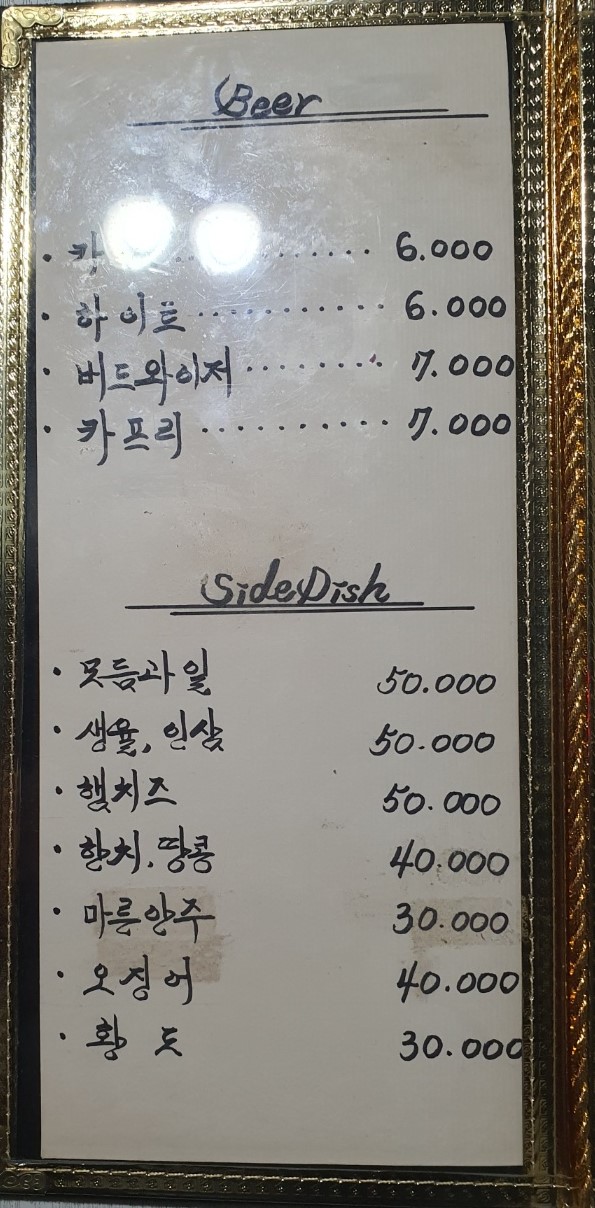 Beer
· ············ 6.000
· 하이트 ············ 6.000
· 버드와이저 ········ 7.000
· 카프리 ·········· 7.000
Side Dish
· 모듬과일 50.000
· 생율, 인삼 50.000
· 햄치즈 50.000
· 한치, 땅콩 40.000
· 마른안주 30.000
· 오징어 40.000
· 황도 30.000